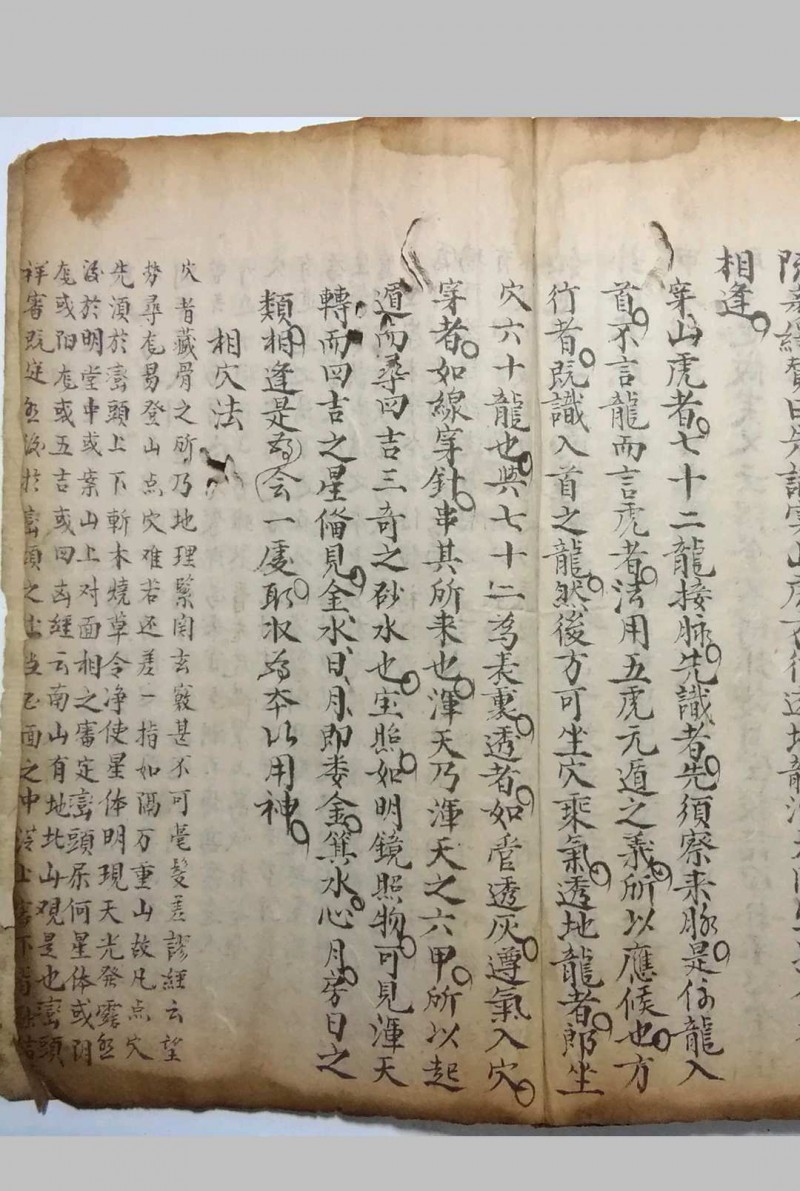 相逢
穿山虎者七十二龍接脉先識者先須察来脉是何龍入
首不言龍而言虎者法用五虎元遁之義所以應候也方
行者既識入首之龍然後方可坐穴乘氣透地龍者郎坐
穴六十龍也與七十二為表裏透者如管透灰遵氣入穴
穿者如線穿針串其所来也渾天乃渾天之六甲所以起
遁而尋四吉三奇之砂水也宝照如明鏡照物可見渾天
轉而四吉之星俻見金水日月即委金箕水心月房日之
類相逢是為会一處取收為夲以用神
相穴法
穴者藏骨之所乃地理緊関玄竅甚不可毫髮差謬経云望
势尋龙易登山点穴难若还差一指如隔万重山故凡点穴
先須於巒頭上下斬木燒草令净使星体明現天光發露然
後於明堂中或案山上对面相之審定巒頭屌何星体或阴
龙或阳龙或五吉或四凶經云南山有地北山观是也巒頭
祥審既定然後於巒頭之
面之中